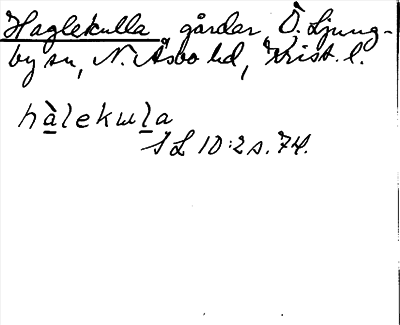 Haglekulla gårdar, Ö. Ljung-
by sn, N. Åsbo hd, Krist. l.
hàlekɯla
SL 10:2 s. 74.